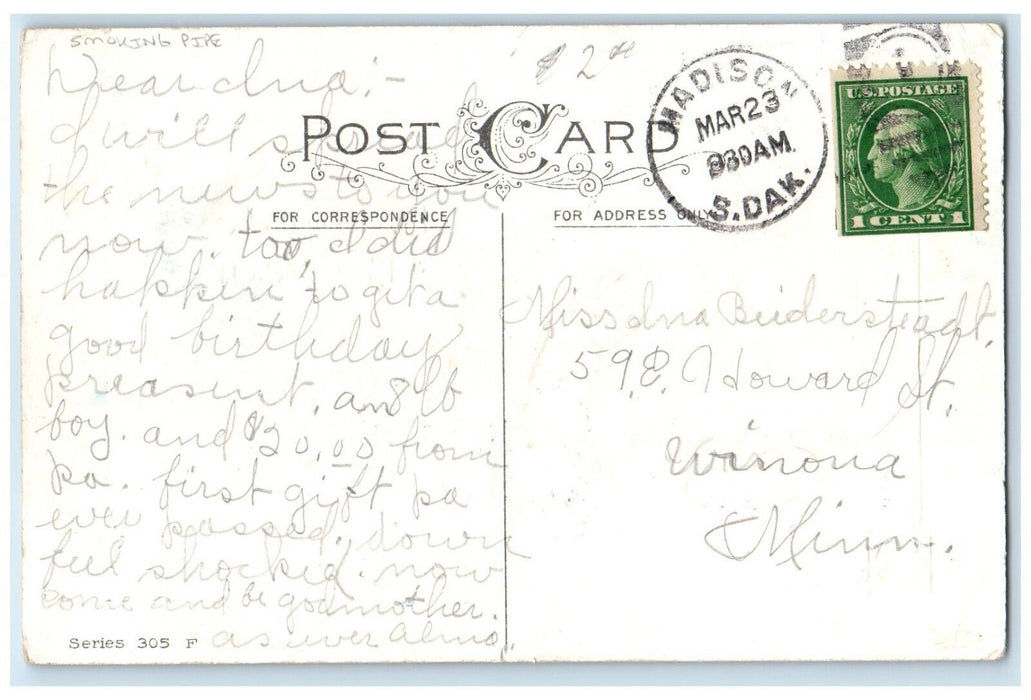 SMOKING PIPE
$2.00
Dear Ina:-
I will spread
the news to you
now. too, I did
happin to git a
good birthday
preasent. an 8 lb
boy. and $20.00 from
pa. first gift pa
ever passed. down
feel shocked. now
come and be godmother.
as ever Alma.
Series 305 F
POST CARD
FOR CORRESPONDENCE
FOR ADDRESS ONLY
MADISON
MAR 23
930 AM.
S. DAK.
U.S. POSTAGE
1 CENT 1
Miss Ina Beidersteadt,
59 E. Howard St,
Winona
Minn.